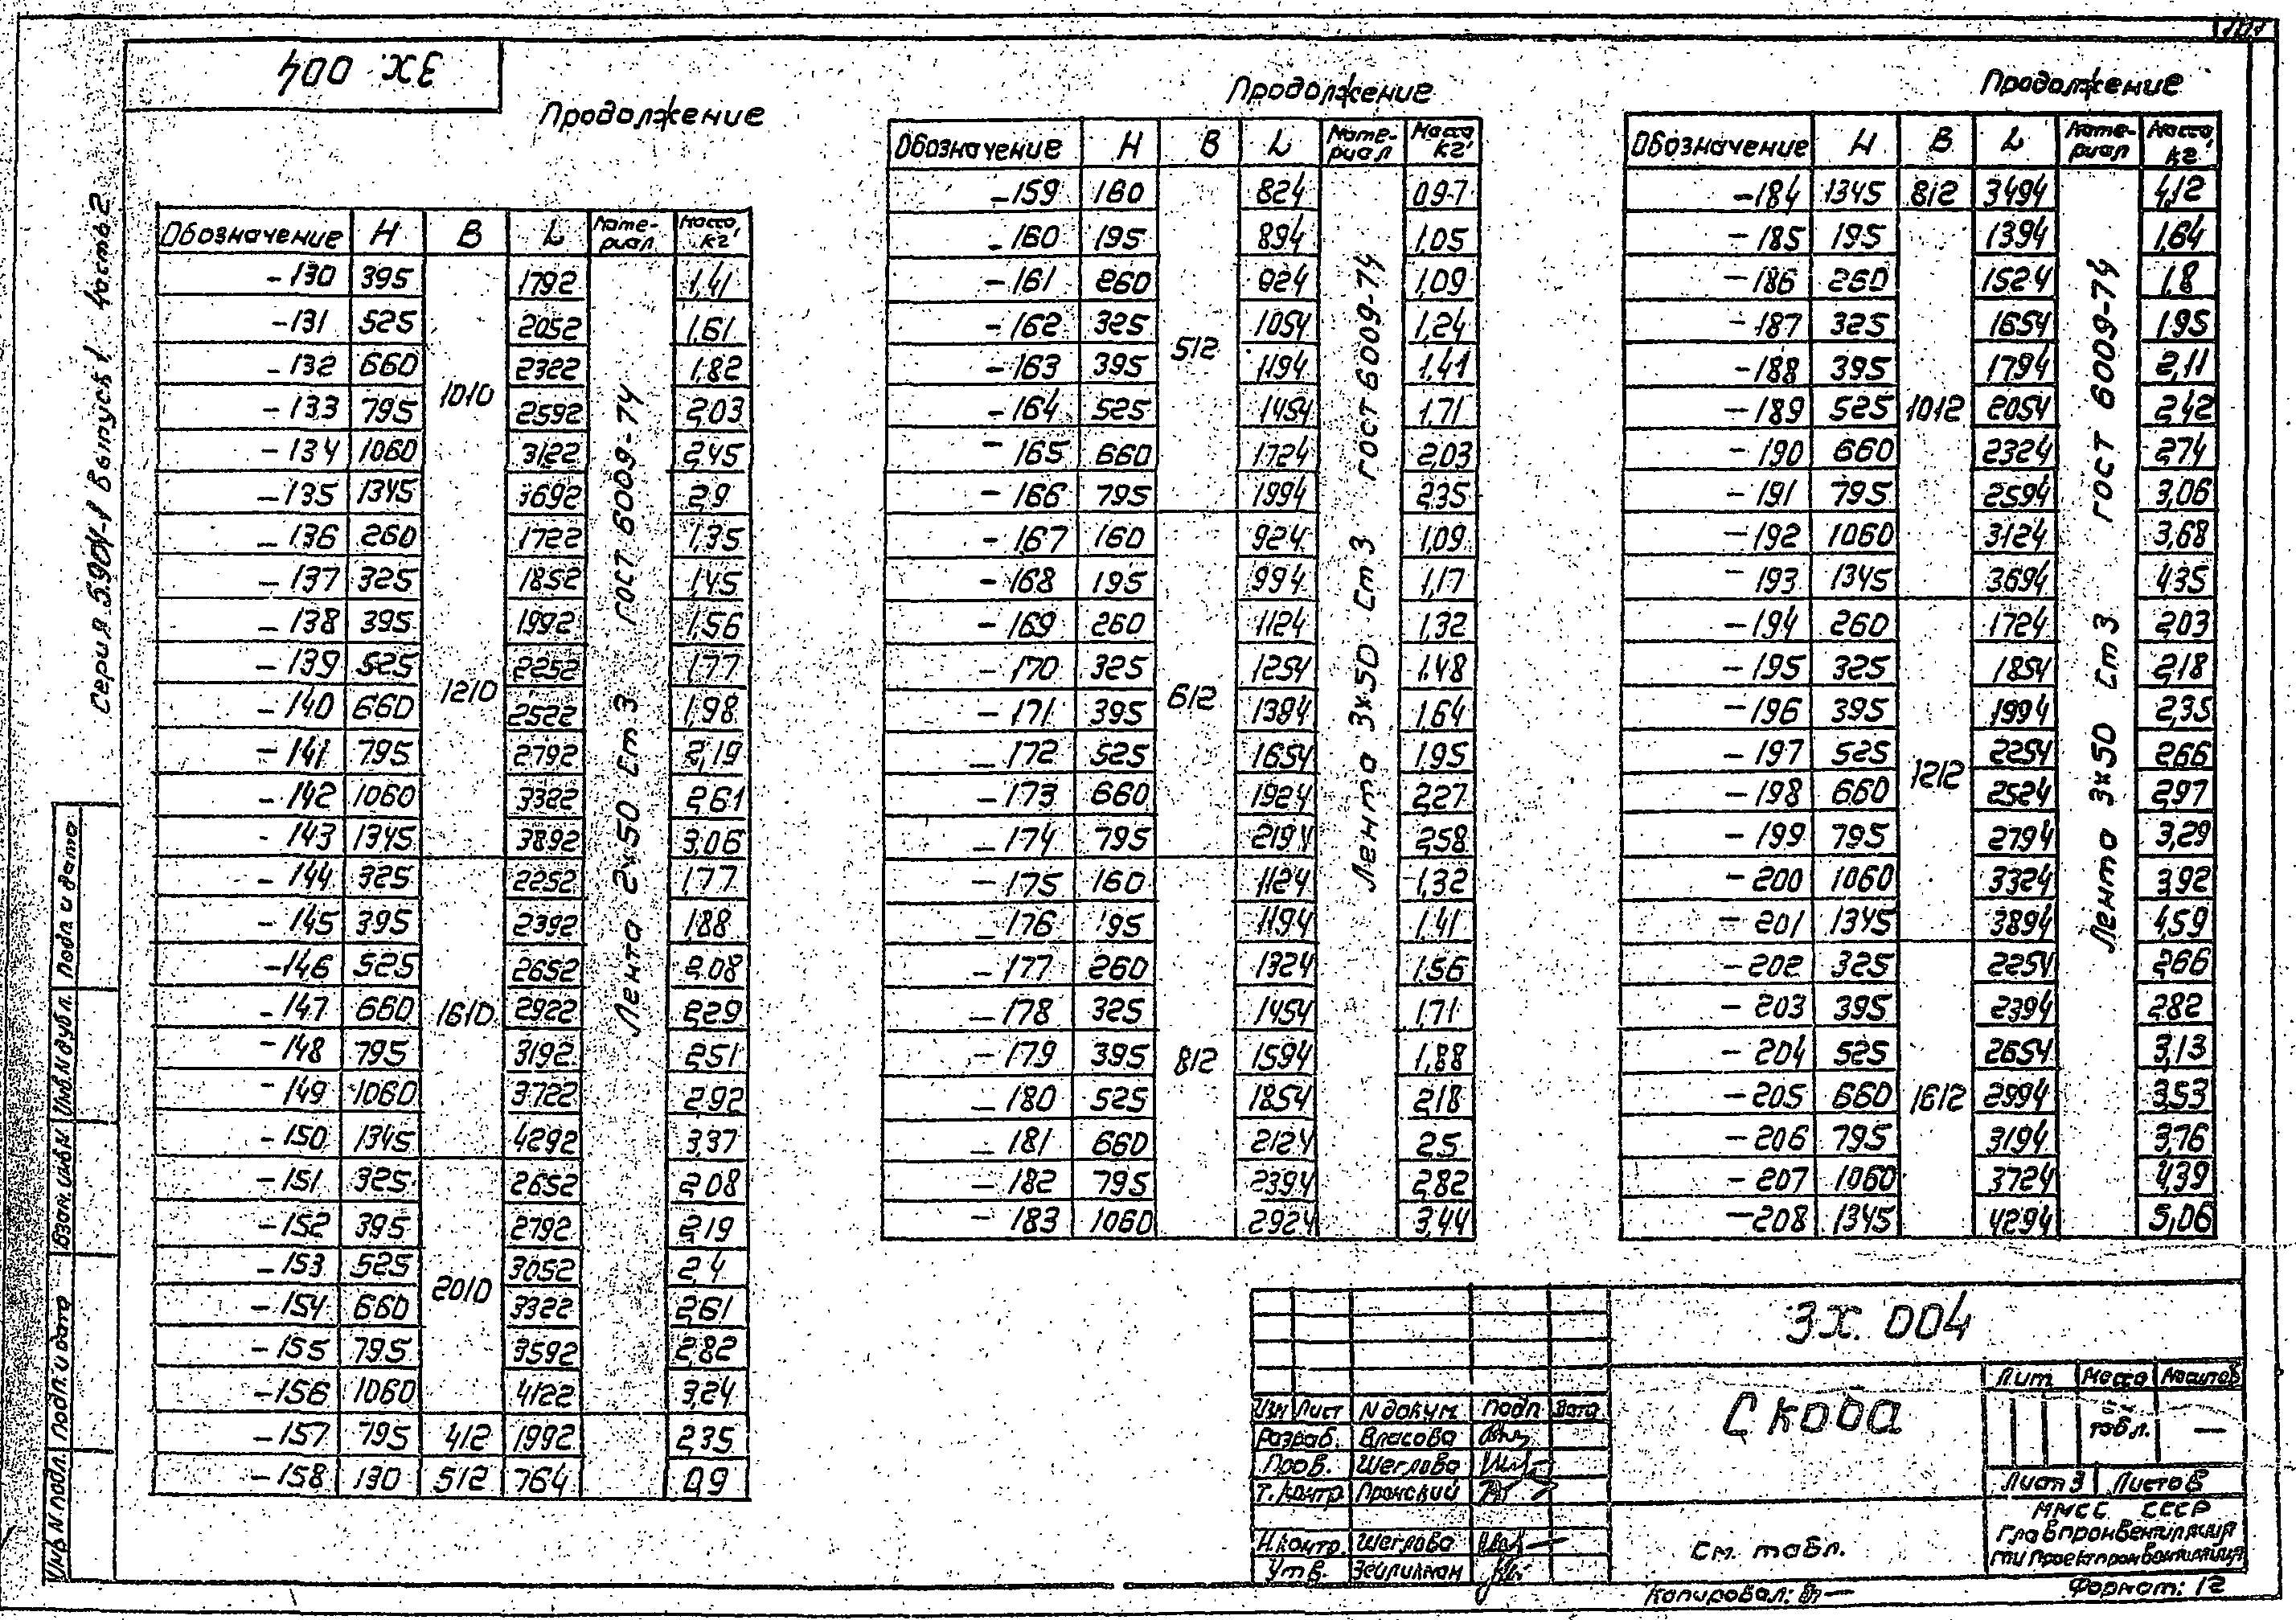 3Х. 004
Серия 5.904-1 Выпуск 1 Часть 2
Продолжение
Обозначение H B L Мате-риал Масса, кг
-130 395 1010 1792 Лента 2×50 Ст 3 ГОСТ 6009-74 1,41
-131 525 2052 1,61
-132 660 2322 1,82
-133 795 2592 2,03
-134 1060 3122 2,45
-135 1345 3692 2,9
-136 260 1210 1722 1,35
-137 325 1852 1,45
-138 395 1992 1,56
-139 525 2252 1,77
-140 660 2522 1,98
-141 795 2792 2,19
-142 1060 3322 2,61
-143 1345 3892 3,06
-144 325 1610 2252 1,77
-145 395 2392 1,88
-146 525 2652 2,08
-147 660 2922 2,29
-148 795 3192 2,51
-149 1060 3722 2,92
-150 1345 4292 3,37
-151 325 2010 2652 2,08
-152 395 2792 2,19
-153 525 3052 2,4
-154 660 3322 2,61
-155 795 3592 2,82
-156 1060 4122 3,24
-157 795 412 1992 2,35
-158 130 512 764 0,9
Продолжение
Обозначение H B L Мате-риал Масса, кг
-159 160 512 824 Лента 3×50 Ст 3 ГОСТ 6009-74 0,97
-160 195 894 1,05
-161 260 924 1,09
-162 325 1054 1,24
-163 395 1194 1,41
-164 525 1454 1,71
-165 660 1724 2,03
-166 795 1994 2,35
-167 160 612 924 1,09
-168 195 994 1,17
-169 260 1124 1,32
-170 325 1254 1,48
-171 395 1394 1,64
-172 525 1654 1,95
-173 660 1924 2,27
-174 795 2194 2,58
-175 160 812 1124 1,32
-176 195 1194 1,41
-177 260 1324 1,56
-178 325 1454 1,71
-179 395 1594 1,88
-180 525 1854 2,18
-181 660 2124 2,5
-182 795 2394 2,82
-183 1060 2924 3,44
Продолжение
Обозначение H B L Мате-риал Масса, кг
-184 1345 812 3494 Лента 3×50 Ст 3 ГОСТ 6009-74 4,12
-185 195 1012 1394 1,64
-186 260 1524 1,8
-187 325 1654 1,95
-188 395 1794 2,11
-189 525 2054 2,42
-190 660 2324 2,74
-191 795 2594 3,06
-192 1060 3124 3,68
-193 1345 3694 4,35
-194 260 1212 1724 2,03
-195 325 1854 2,18
-196 395 1994 2,35
-197 525 2254 2,66
-198 660 2524 2,97
-199 795 2794 3,29
-200 1060 3324 3,92
-201 1345 3894 4,59
-202 325 1612 2254 2,66
-203 395 2394 2,82
-204 525 2654 3,13
-205 660 2994 3,53
-206 795 3194 3,76
-207 1060 3724 4,39
-208 1345 4294 5,06
Подп. и дата
Инв.N дубл.
Взам. инв.N
Подп. и дата
Инв.N подл.
3Х. 004
Изм Лист N докум. Подп Дата
Разраб. Власова
Пров. Щеглова
Т. контр Пронский
Н.контр. Щеглова
Утв.
Скоба
Лит. Масса Масштаб
См. табл. —
Лист 3 Листов
См. табл.
ММСС СССР
Главпромвентиляция
ГПИ Проектпромвентиляция
Копировал:
Формат: 12